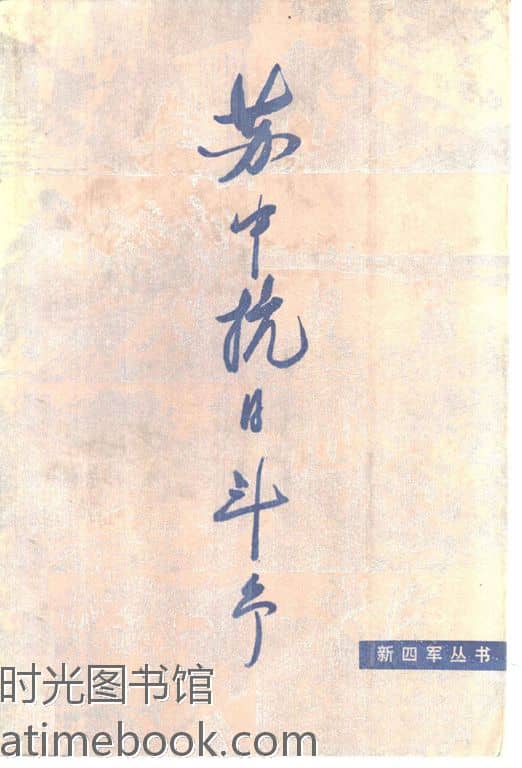 苏中抗日斗争
新四军丛书
时光图书馆
atimebook.com